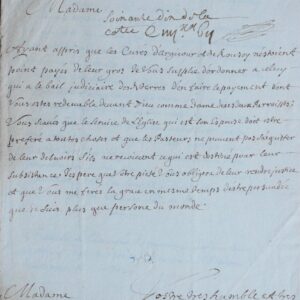 Madame
soixante dix de la
cotee
Ayant appris que les Cures d'argueour et de Rousoy nestoient
point payés de leur gros Je Vous supplie dordonner a celuy
qui a le bail judiciaire des terres d'en faire le payement dont
Vous estes redevable devant Dieu comme dame
Vous Sçavés que le service de l'Eglise qui est son Epouse doit estre
preferé a toutes choses et que les Pasteurs ne peuvent pas s'aquitter
de leur debvoir s'ils ne recoivent ce qui est destiné pour leur
subsistance J'espere que Vostre pieté Vous obligera de leur rendre justice
et que Vous me ferés la grace en mesme temps destre persuadée
que je suis plus que personne du monde
Madame
Vostre tres humble et tres